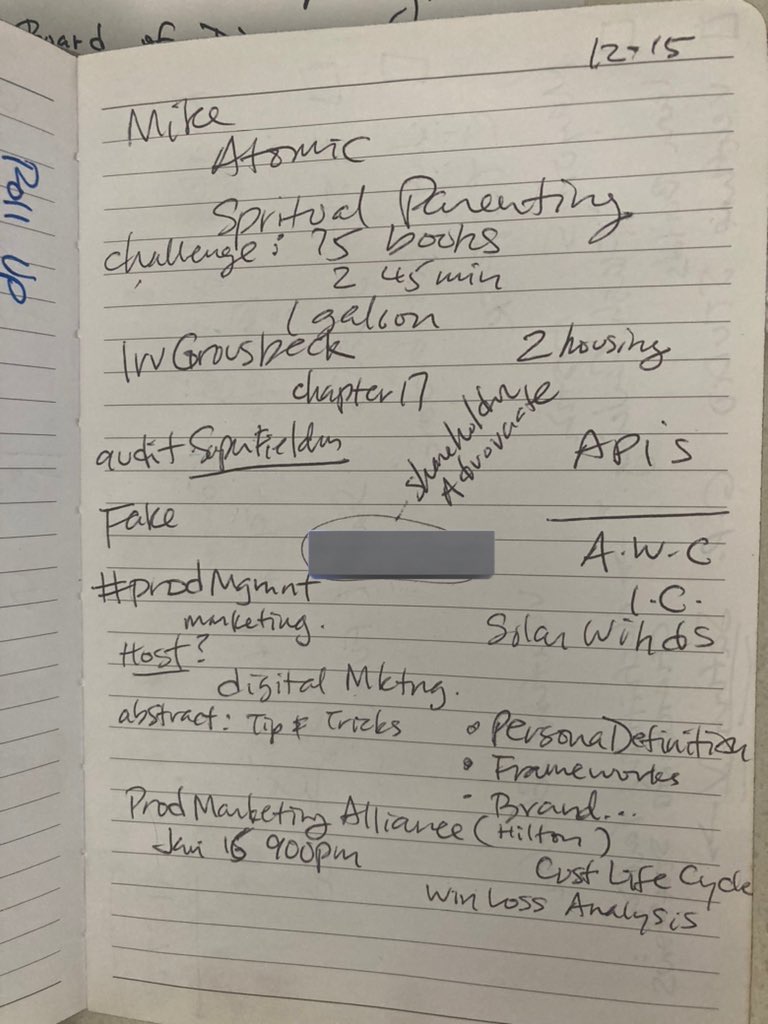 Board of
Roll Up
12-15
Mike
Atomic
Spritual Parenting
challenge: 75 books
2 45 min
1 gallon
Irv Grousbeck
2 housing
chapter 17
shareholder
Advovacte
audit
APIs
Fake
A.W.C
#prodMgmnt
I.C.
marketing.
Solar Winds
Host?
digital Mktng.
abstract: Tip & Tricks
• Persona Definition
• Frameworks
- Brand...
Prod Marketing Alliance (Hilton)
Jan 16 900pm
Cust Life Cycle
Win Loss Analysis